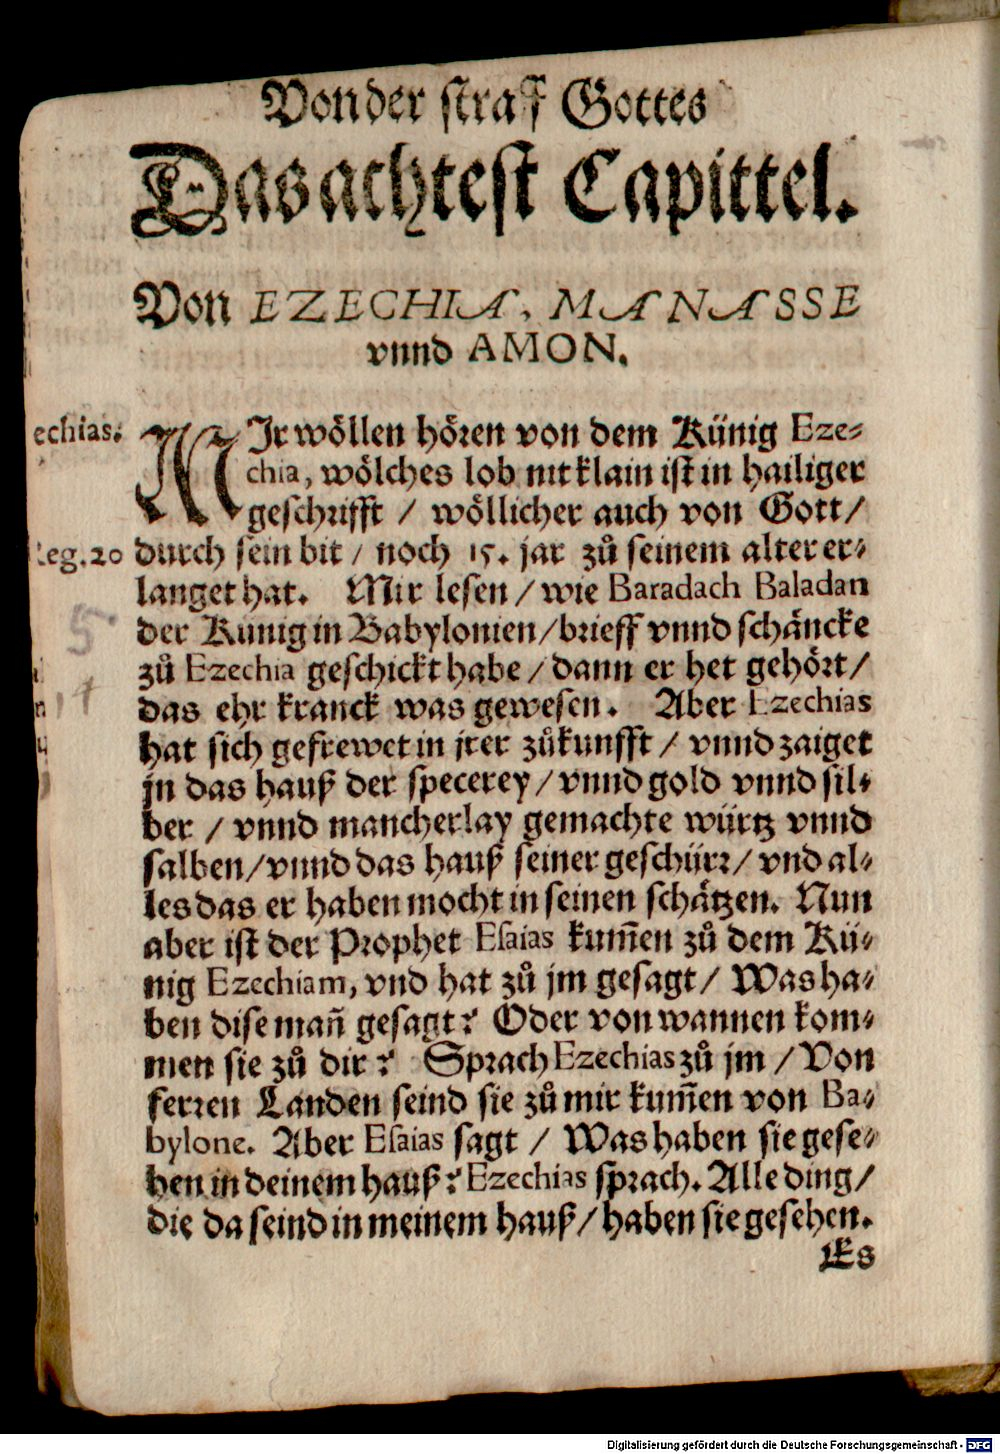 Von der straff Gottes
Das achtest Capittel.
Von EZECHIA, MANASSE
vnnd AMON.
echias.
WIr wöllen hören von dem Künig Eze-
chia, wölches lob nit klain ist in hailiger
geschrifft / wöllicher auch von Gott /
eg. 20
durch sein bit / noch 15. jar zů seinem alter er-
langet hat. Mir lesen / wie Baradach Baladan
5
der Künig in Babylonien / brieff vnnd schäncke
zů Ezechia geschickt habe / dann er het gehört /
das ehr kranck was gewesen. Aber Ezechias
hat sich gefrewet in jrer zůkunfft / vnnd zaiget
jn das hauß der specerey / vnnd gold vnnd sil-
ber / vnnd mancherlay gemachte würtz vnnd
salben / vnnd das hauß seiner geschürr / vnd al-
les das er haben mocht in seinen schätzen. Nun
aber ist der Prophet Esaias kum̄en zů dem Kü-
nig Ezechiam, vnd hat zů jm gesagt / Was ha-
ben dise man̄ gesagt? Oder von wannen kom-
men sie zů dir? Sprach Ezechias zů jm / Von
ferren Landen seind sie zů mir kum̄en von Ba-
bylone. Aber Esaias sagt / Was haben sie gese-
hen in deinem hauß? Ezechias sprach. Alle ding /
die da seind in meinem hauß / haben sie gesehen.
Es
Digitalisierung gefördert durch die Deutsche Forschungsgemeinschaft - DFG